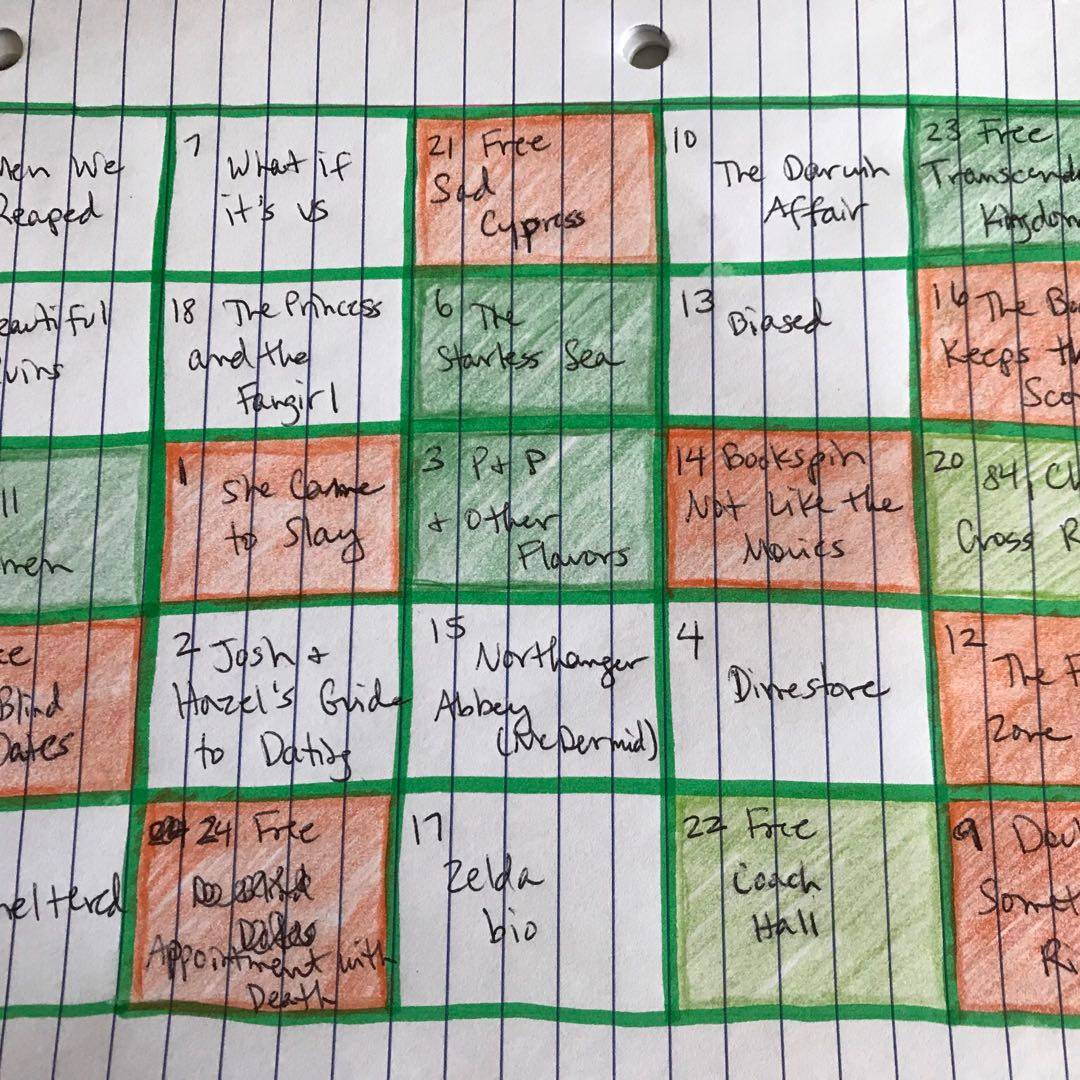 Men We
Reaped
7
What if
it's us
21 Free
Sad
Cypress
10
The Darwin
Affair
23 Free
Transcend
Kingdom
eautiful
uins
18 The Princess
and the
Fangirl
6 The
Starless Sea
13 Biased
16 The Bo
Keeps th
Sco
ll
men
1
She Came
to Slay
3 P + P
+ Other
Flavors
14 Bookspin
Not Like the
Movies
20
84, Ch
Cross R
ce
Blind
Dates
2 Josh +
Hazel's Guide
to Dating
15
Northanger
Abbey
(McDermid)
4
Dimestore
12
The F
Zone
heltered
24 Free
Appointment with
Death
17
Zelda
bio
22 Free
Coach
Hall
9
Somet
Ri